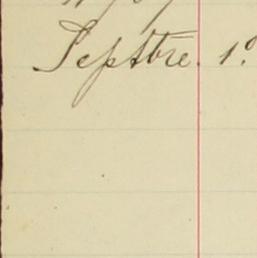 Sepstbre. 1º